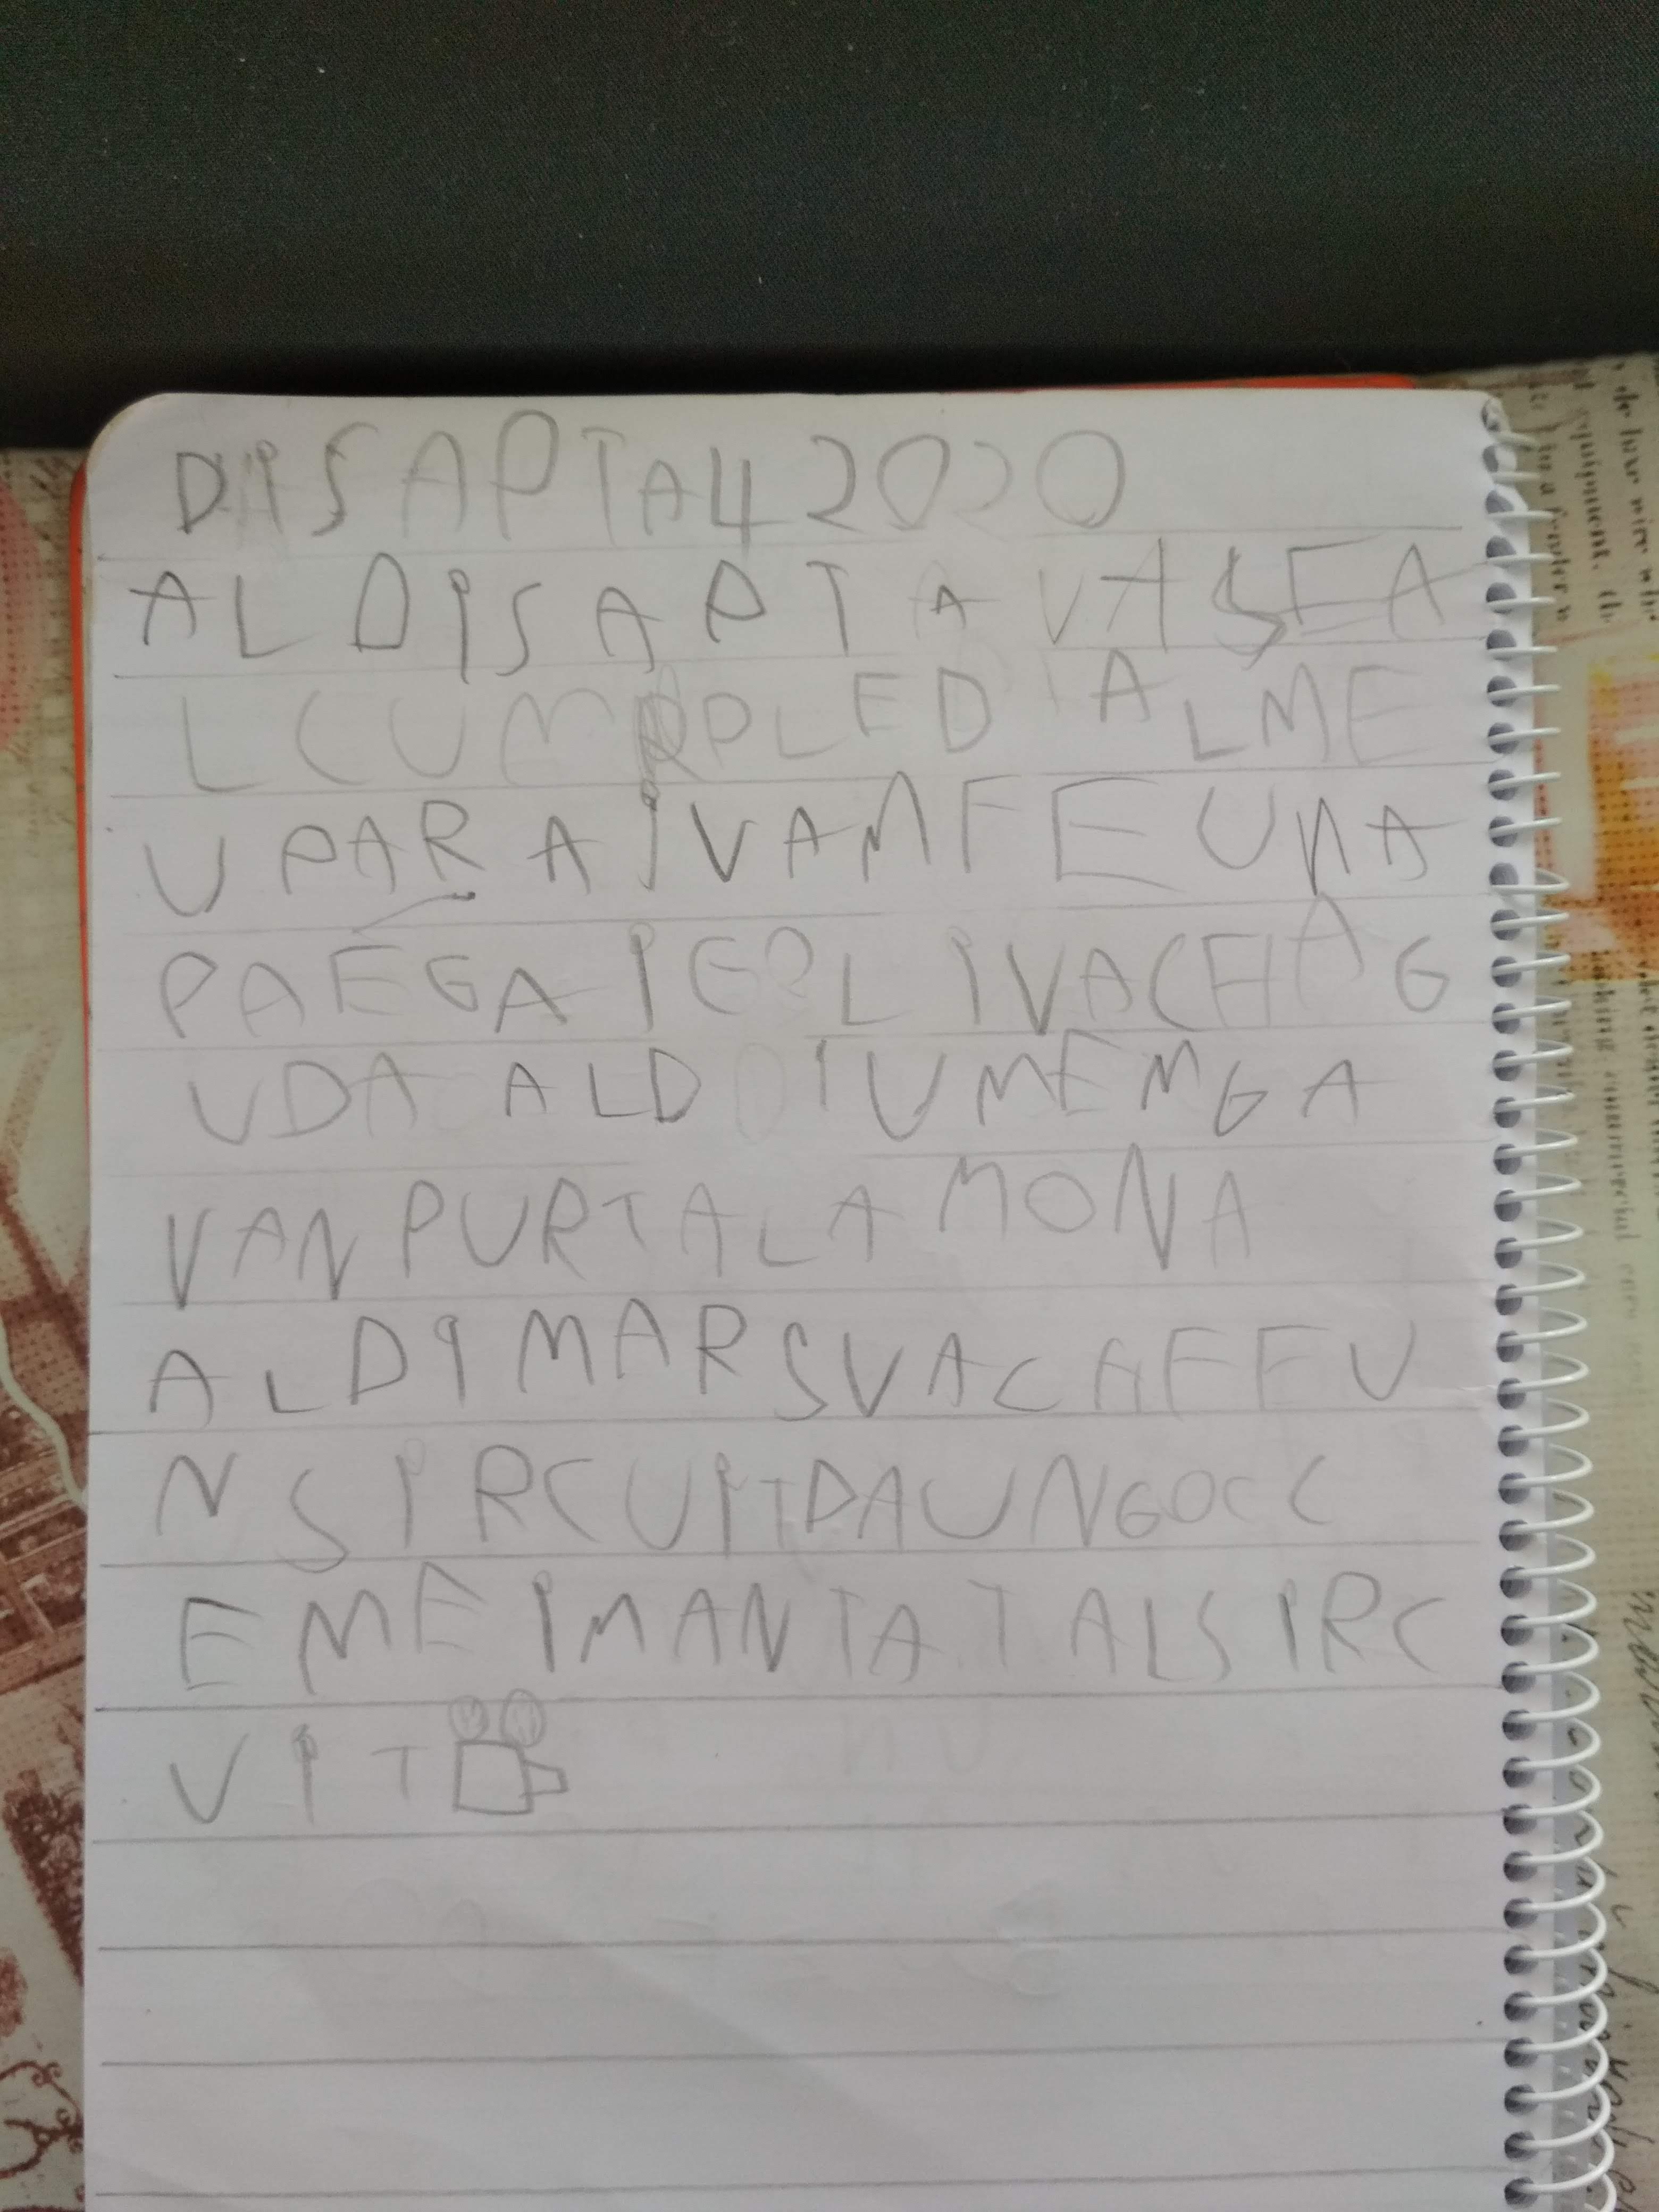 DISAPTA 4 2020
AL DISAPTA VA SE A
L CUMPLE DAL ME
U PARA I VAM FE UNA
PAEGA I GOL I VACHAG
UDA AL DIUMENGA
VAN PURTA LA MONA
AL DIMARS VACH FE U
N SIRCUIT DA UN GOC C
EM E IMANTAT AL SIRC
UIT